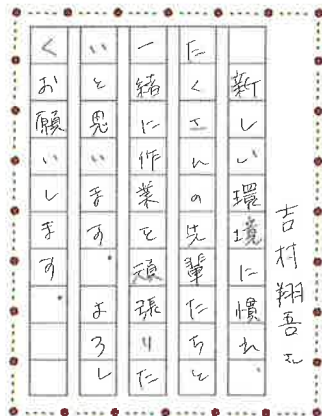 吉村翔吾さん
新しい環境に慣れ、
たくさんの先輩たちと
一緒に作業を頑張りた
いと思います。よろし
くお願いします。